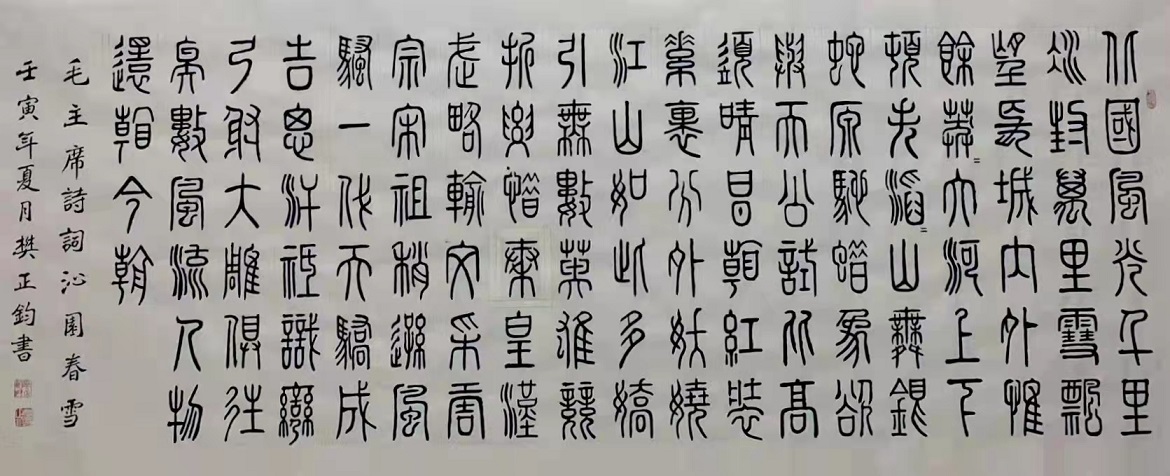 北國風光千里
冰封萬里雪飄
望長城內外惟
餘莽=大河上下
頓失滔=山舞銀
蛇原馳蜡象欲
與天公試比高
須晴日看紅裝
素裹分外妖嬈
江山如此多嬌
引無數英雄競
折腰惜秦皇漢
武略輸文采唐
宗宋祖稍遜風
騷一代天驕成
吉思汗祗識彎
弓射大雕俱往
矣數風流人物
還看今朝
毛主席詩詞沁園春雪
壬寅年夏月樊正鈞書